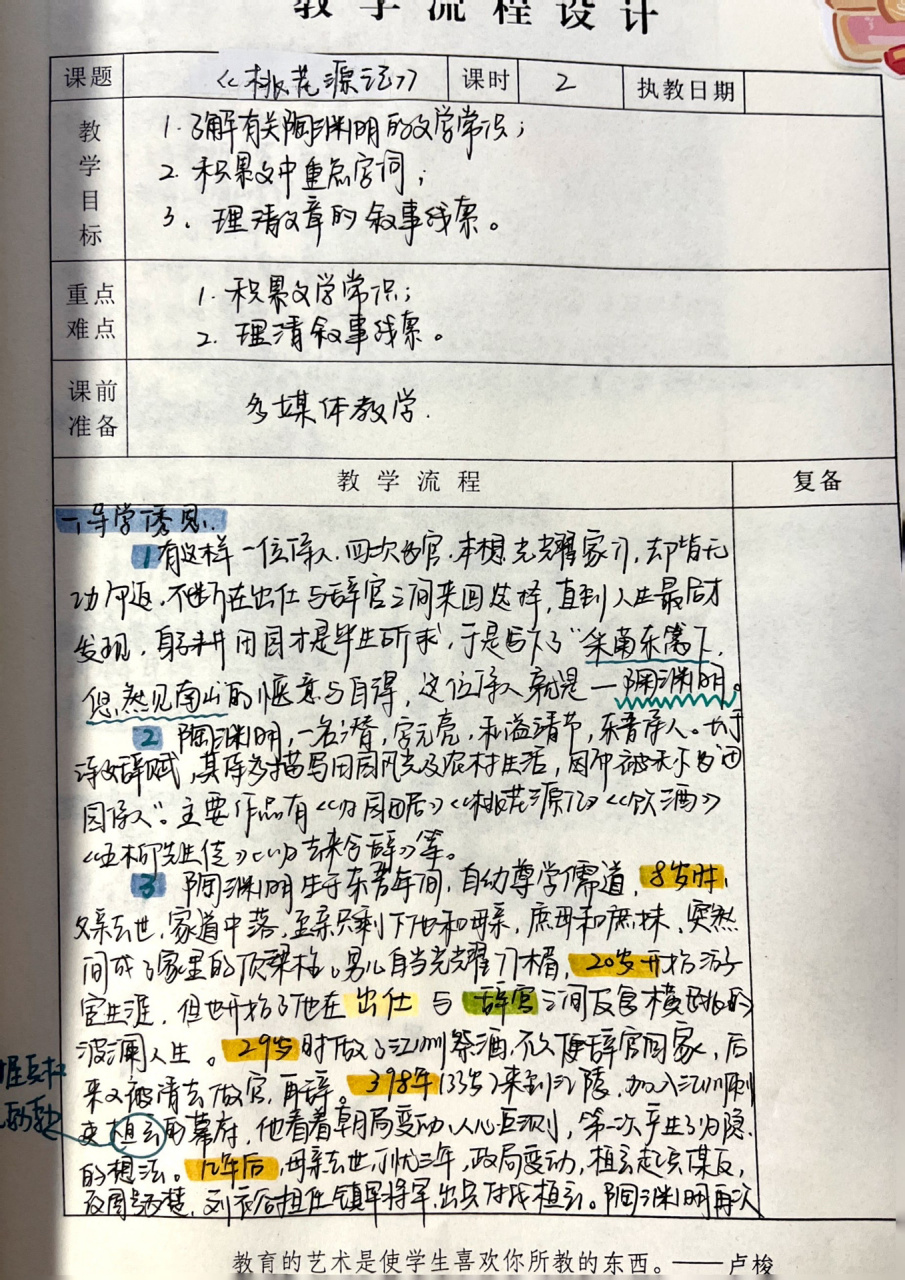 教学流程设计
课题 《桃花源记》 课时 2 执教日期
教学目标
1. 了解有关陶渊明的文学常识；
2. 积累文中重点字词；
3. 理清文章的叙事线索。
重点难点
1. 积累文学常识；
2. 理清叙事线索。
课前准备 多媒体教学.
教学流程 复备
一、导学诱思.
1 有这样一位诗人，四次为官，本想光耀家门，却皆无
功而返，不断在出仕与辞官之间来回选择，直到人生最后才
发现，躬耕田园才是毕生所求，于是写下了“采菊东篱下，
悠然见南山”的惬意与自得，这位诗人就是—陶渊明。
2 陶渊明，一名潜，字元亮，私谥靖节，东晋诗人。长于
诗文辞赋，其诗多描写田园风光及农村生活，因而被称为“田
园诗人”。主要作品有《归园田居》《桃花源记》《饮酒》
《五柳先生传》《归去来兮辞》等。
3 陶渊明生于东晋年间，自幼尊学儒道，8岁时，
父亲去世，家道中落，至亲只剩下他和母亲，庶母和庶妹，突然
间成了家里的顶梁柱。男儿自当光耀门楣，20岁开始游子
宦生涯，但也开始了他在出仕与辞官之间反复横跳的
波澜人生。29岁时做了江州祭酒，不久便辞官回家，后
来又被请去做官，再辞。398年（33岁）来到江陵，加入江州刺
史桓玄的幕府，他看着朝局变动、人心叵测，第一次产生了归隐
的想法。几年后，母亲去世，丁忧三年，政局变动，桓玄起兵谋反，
改国号楚，刘裕担任镇军将军出兵讨伐桓玄。陶渊明再次
握兵权
教育的艺术是使学生喜欢你所教的东西。——卢梭